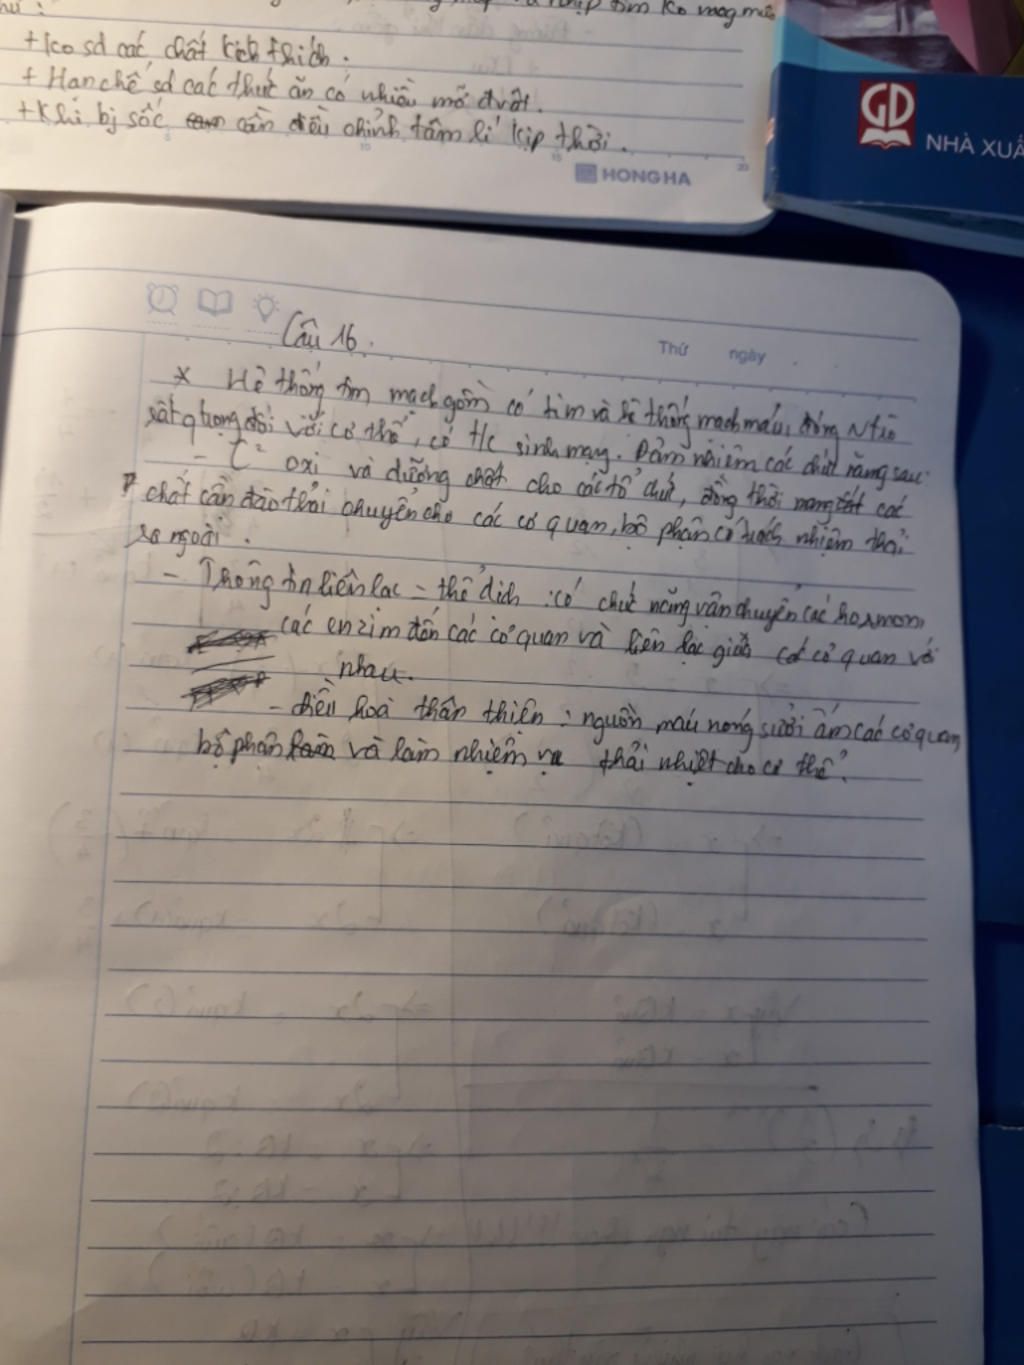 + Ko sd các chất kích thích.
+ Hạn chế sd các thức ăn có nhiều mỡ đvật.
+ Khi bị sốc, cần điều chỉnh tâm lí kịp thời.
HONG HA
GD
NHÀ XUẤ
Câu 16.
Thứ ngày
* Hệ thống tim mạch gồm có tim và hệ thống mạch máu, đóng
rất qtrọng đối với cơ thể, có t/c sinh mạng. Đảm nhiệm các chức năng sau:
- C² oxi và dưỡng chất cho các tổ chức, đồng thời mang các
chất cần đào thải chuyển cho các cơ quan, bộ phận có trách nhiệm thải
ra ngoài.
- Thông tin liên lạc - thể dịch : có chức năng vận chuyển các hormon,
các enzim đến các cơ quan và liên lạc giữa các cơ quan với
nhau.
- điều hoà thân thiện : nguồn máu nóng sưởi ấm các cơ quan,
bộ phận và làm nhiệm vụ thải nhiệt cho cơ thể.